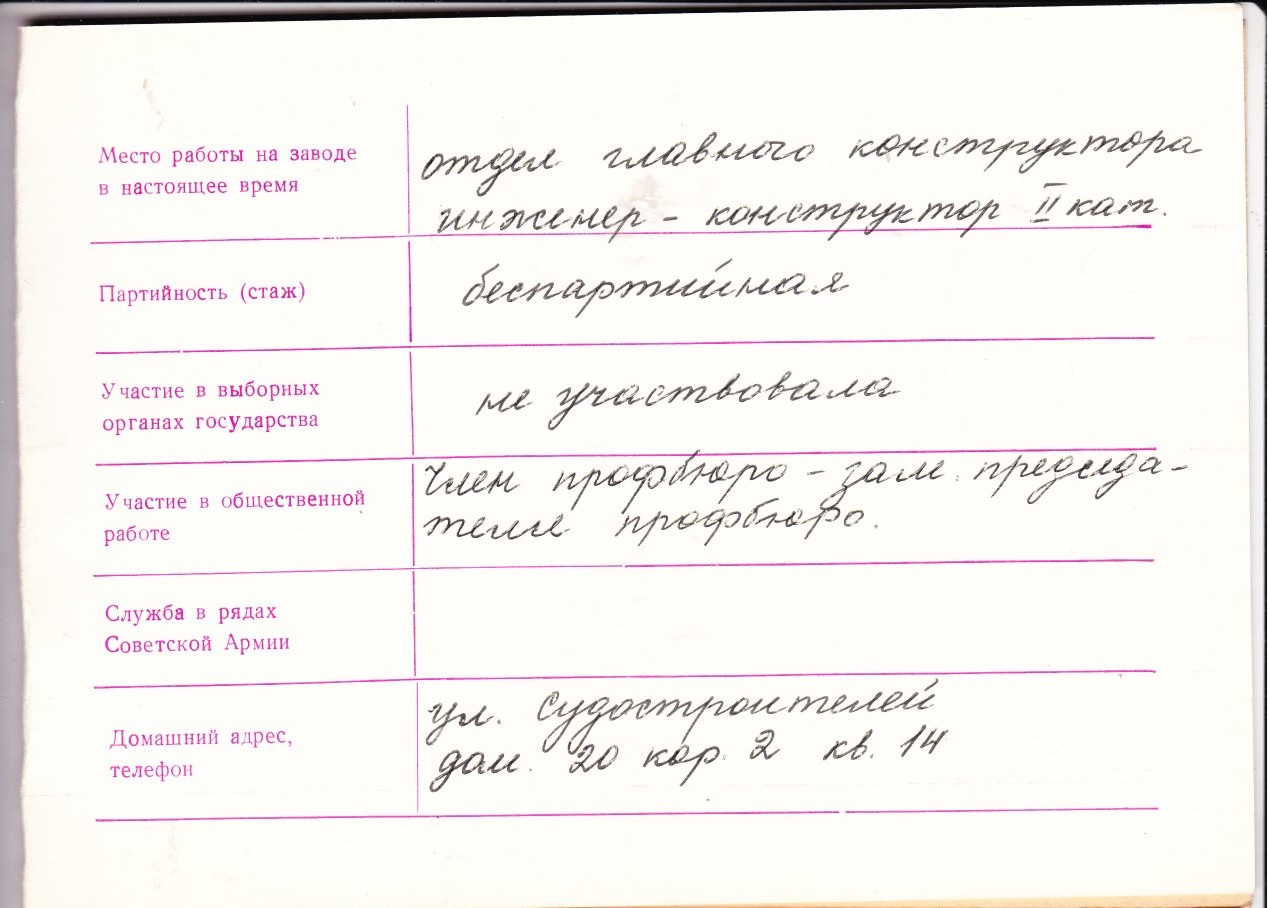 Место работы на заводе
в настоящее время
отдел главного конструктора
инженер - конструктор II кат.
Партийность (стаж)
беспартийная
Участие в выборных
органах государства
не участвовала
Участие в общественной
работе
Член профбюро - зам. председа-
теля профбюро.
Служба в рядах
Советской Армии
Домашний адрес,
телефон
ул. Судостроителей
дом. 20 кор. 2 кв. 14